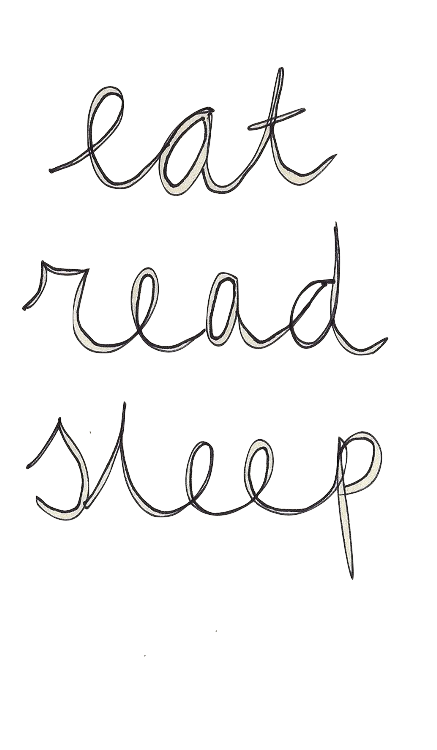 eat
read
sleep